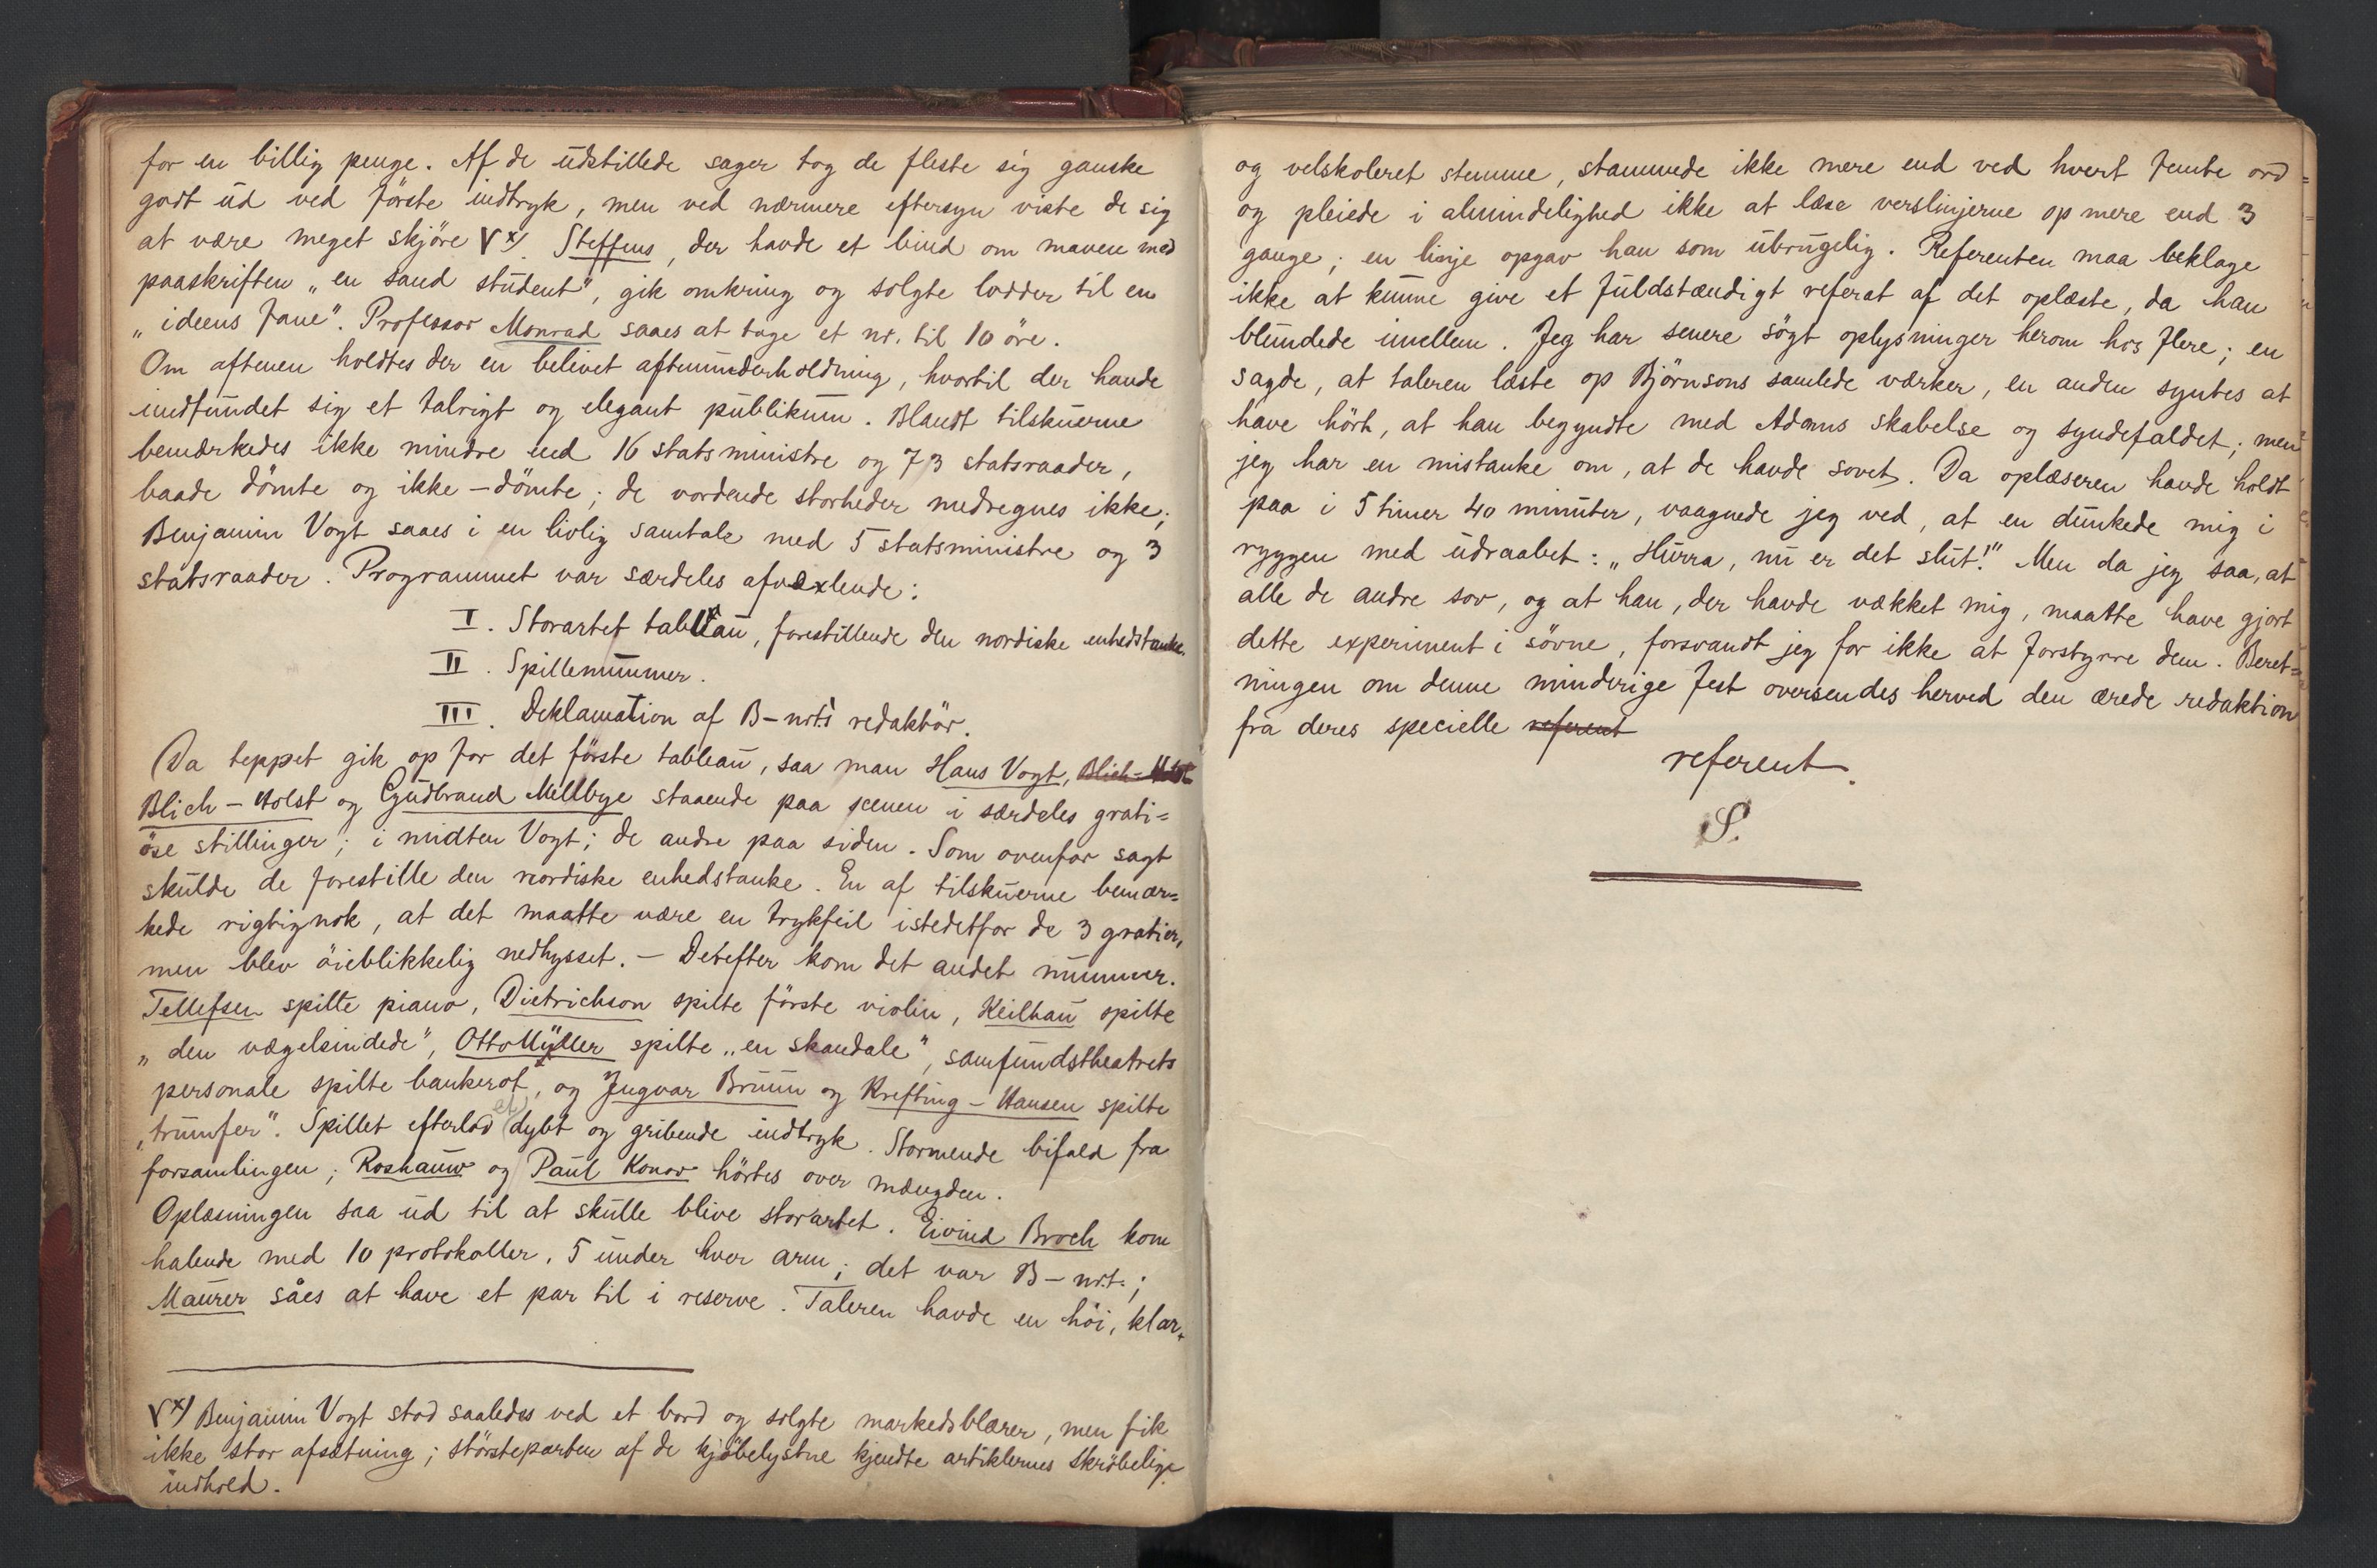 for en billig penge. Af de udstillede sager tog de fleste sig ganske
godt ud ved förste indtryk, men ved nærmere eftersyn viste de sig
at være meget skjöre x). Steffens, der havde et bind om maven med
paaskriften „en sand student", gik omkring og solgte lodder til en
„ideens fane". Professor Monrad saaes at tage et nr. til 10 öre.
Om aftenen holdtes der en belivet aftenunderholdning, hvortil der havde
indfundet sig et talrigt og elegant publikum. Blandt tilskuerne
bemærkedes ikke mindre end 16 statsministre og 73 statsraader,
baade dömte og ikke-dömte; de vordende storheder medregnes ikke;
Benjamin Vogt saaes i en livlig samtale med 5 statsministre og 3
statsraader. Programmet var særdeles afvexlende:
I. Storartet tableau, forestillende den nordiske enhedstanke.
II. Spillenummer.
III. Deklamation af B-nrt.s redaktör.
Da teppet gik op for det förste tableau, saa man Hans Vogt, Blich-Holst
Blich-Holst og Gudbrand Millbye staaende paa scenen i særdeles grati=
öse stillinger; i midten Vogt; de andre paa siden. Som ovenfor sagt
skulde de forestille den nordiske enhedstanke. En af tilskuerne bemær=
kede rigtignok, at det maatte være en trykfeil istedetfor de 3 gratier,
men blev öieblikkelig nedhysset. – Derefter kom det andet nummer.
Tellefsen spilte piano, Dietrichson spilte förste violin, Keilhau spilte
„den vægelsindede", Otto Müller spilte „en skandale", samfundstheatrets
personale spilte bankerot, og Ingvar Bruun og Krefting-Hansen spilte
„trumfer". Spillet efterlod et dybt og gribende indtryk. Stormende bifald fra
forsamlingen; Roshauw og Paul Konow hörtes over mængden.
Oplæsningen saa ud til at skulle blive storartet. Eivind Broch kom
halende med 10 protokoller, 5 under hver arm; det var B-nrt.;
Maurer såes at have et par til i reserve. Taleren havde en höi, klar
x) Benjamin Vogt stod saaledes ved et bord og solgte markedsblærer, men fik
ikke stor afsætning; störsteparten af de kjöbelystne kjendte artiklernes skröbelige
indhold.
og velskoleret stemme, stammede ikke mere end ved hvert femte ord
og pleiede i almindelighed ikke at læse verslinjerne op mere end 3
gange; en linje opgav han som ubrugelig. Referenten maa beklage
ikke at kunne give et fuldstændigt referat af det oplæste, da han
blundede imellem. Jeg har senere sögt oplysninger herom hos flere; en
sagde, at taleren læste op Björnsons samlede værker, en anden syntes at
have hört, at han begyndte med Adams skabelse og syndefaldet; men
jeg har en mistanke om, at de havde sovet. Da oplæseren havde holdt
paa i 5 timer 40 minuter, vaagnede jeg ved, at en dunkede mig i
ryggen med udraabet: „Hurra, nu er det slut!" Men da jeg saa, at
alle de andre sov, og at han, der havde vækket mig, maatte have gjort
dette experiment i sövne, forsvandt jeg for ikke at forstyrre dem. Beret=
ningen om denne minderige fest oversendes herved den ærede redaktion
fra deres specielle referent
referent.
S.